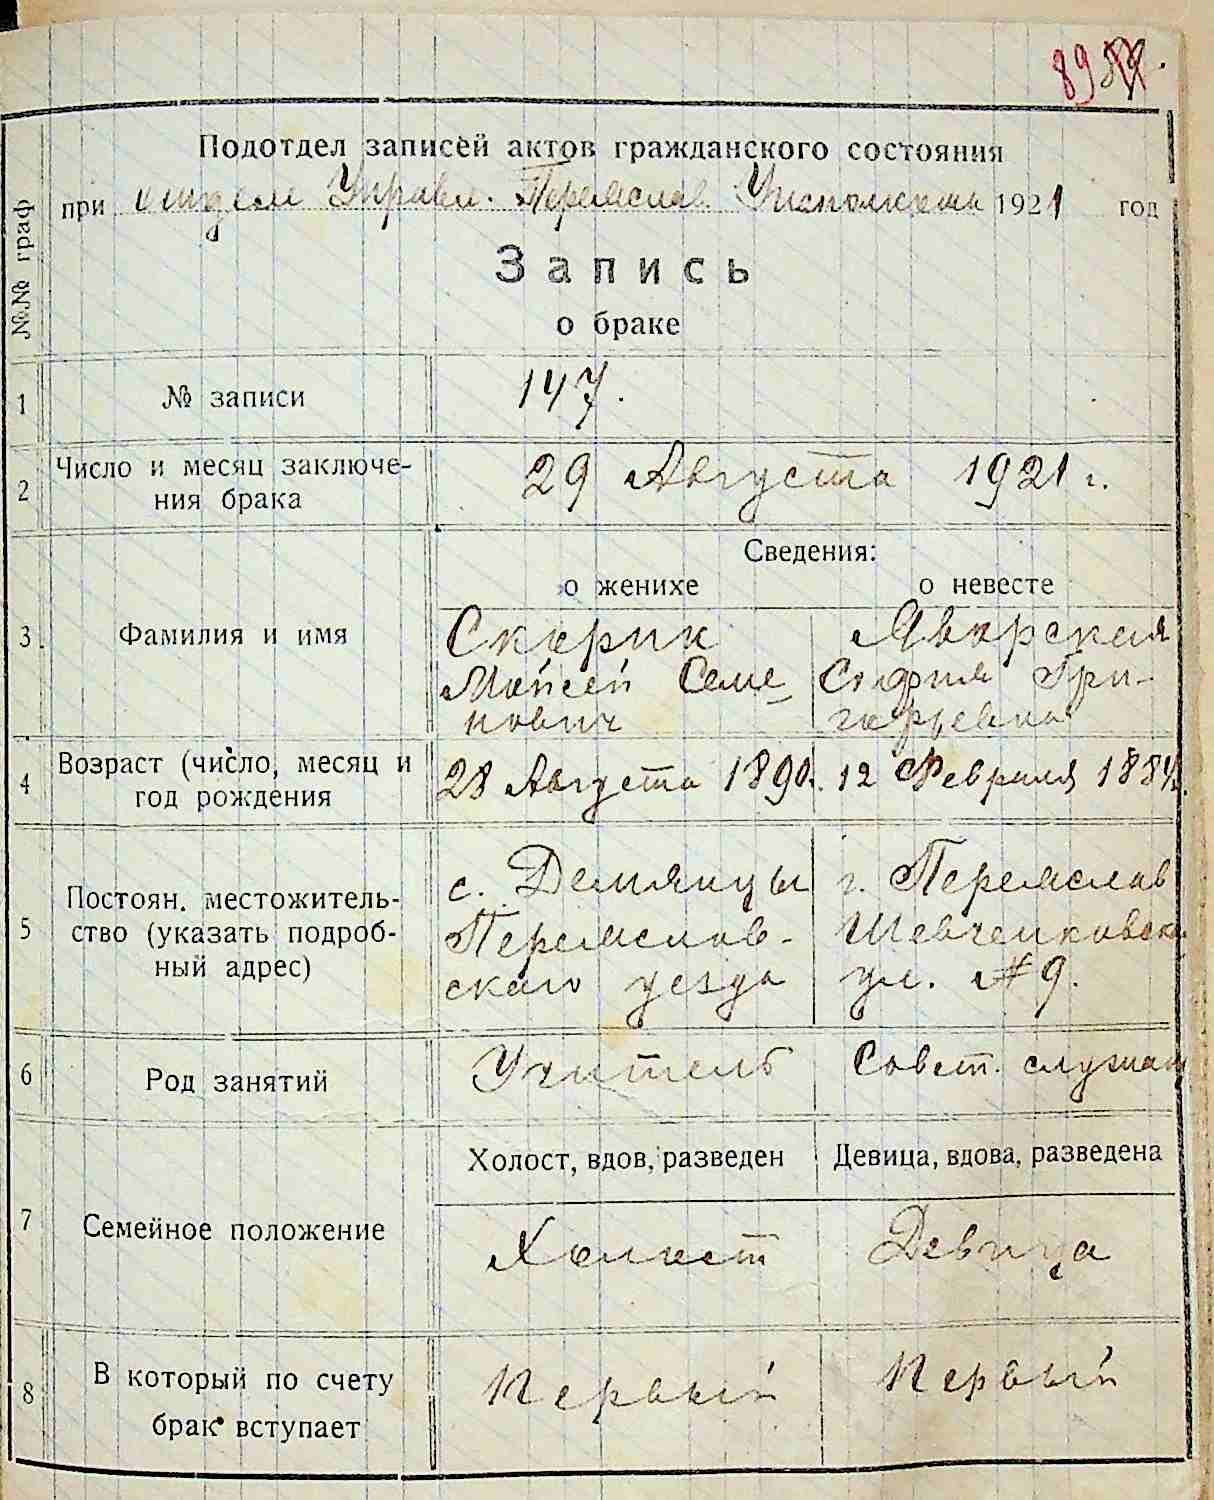 89
Подотдел записей актов гражданского состояния
при отделе Управл. Переяслав. Уисполкома 1921 год
№№ граф
Запись
о браке
1 № записи 147.
2 Число и месяц заключе-
ния брака 29 Августа 1921 г.
Сведения:
о женихе о невесте
3 Фамилия и имя Скорик Яворская
Мойсей Семе- София Гри-
нович горьевна
4 Возраст (число, месяц и
год рождения 28 Августа 1890. 12 Февраля 1884.
5 Постоян. местожитель-
ство (указать подроб-
ный адрес)
с. Демянцы г. Переяслав
Переяслов- Шевченковская
скаго уезда ул. № 9.
6 Род занятий Учитель Совет. служащ
Холост, вдов, разведен Девица, вдова, разведена
7 Семейное положение Холост Девица
8 В который по счету
брак вступает Первый Первый